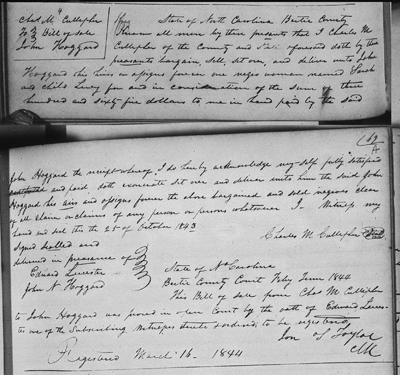 Chas M Callepher
To } Bill of Sale
John Hoggard
State of North Carolina Bertie County
Know all men by these presents that I Charles M
Callepher of the County and State aforesaid doth by these
presants bargain, Sell, Set over, and deliver unto John
Hoggard his heirs or assigns forever one negro woman named Sarah
and child Lucy for and in consideration of the sum of three
hundred and sixty five dollars to me in hand paid by the said
John Hoggard the receipt whereof I do hereby acknowledge my self fully satisfied
and paid, doth exonerate Set over and deliver unto him the said John
Hoggard his airs and assigns forever the above bargained and sold negroes clear
of all claim or claims of any person or persons whatsoever I Witness my
hand and seal this the 21st of October 1843
Charles M Callepher Seal
Signd Sealled and
delivered in presence of
Edward
John N Hoggard
State of N Carolina
Bertie County Court Feby Term 1844
This Bill of Sale from Chas M Callepher
to John Hoggard was proved in open Court by the oath of Edward
one of the Subscribing Witnesses thereto & ordered to be registered
Jon S Taylor
Clk
Registered March 16 1844